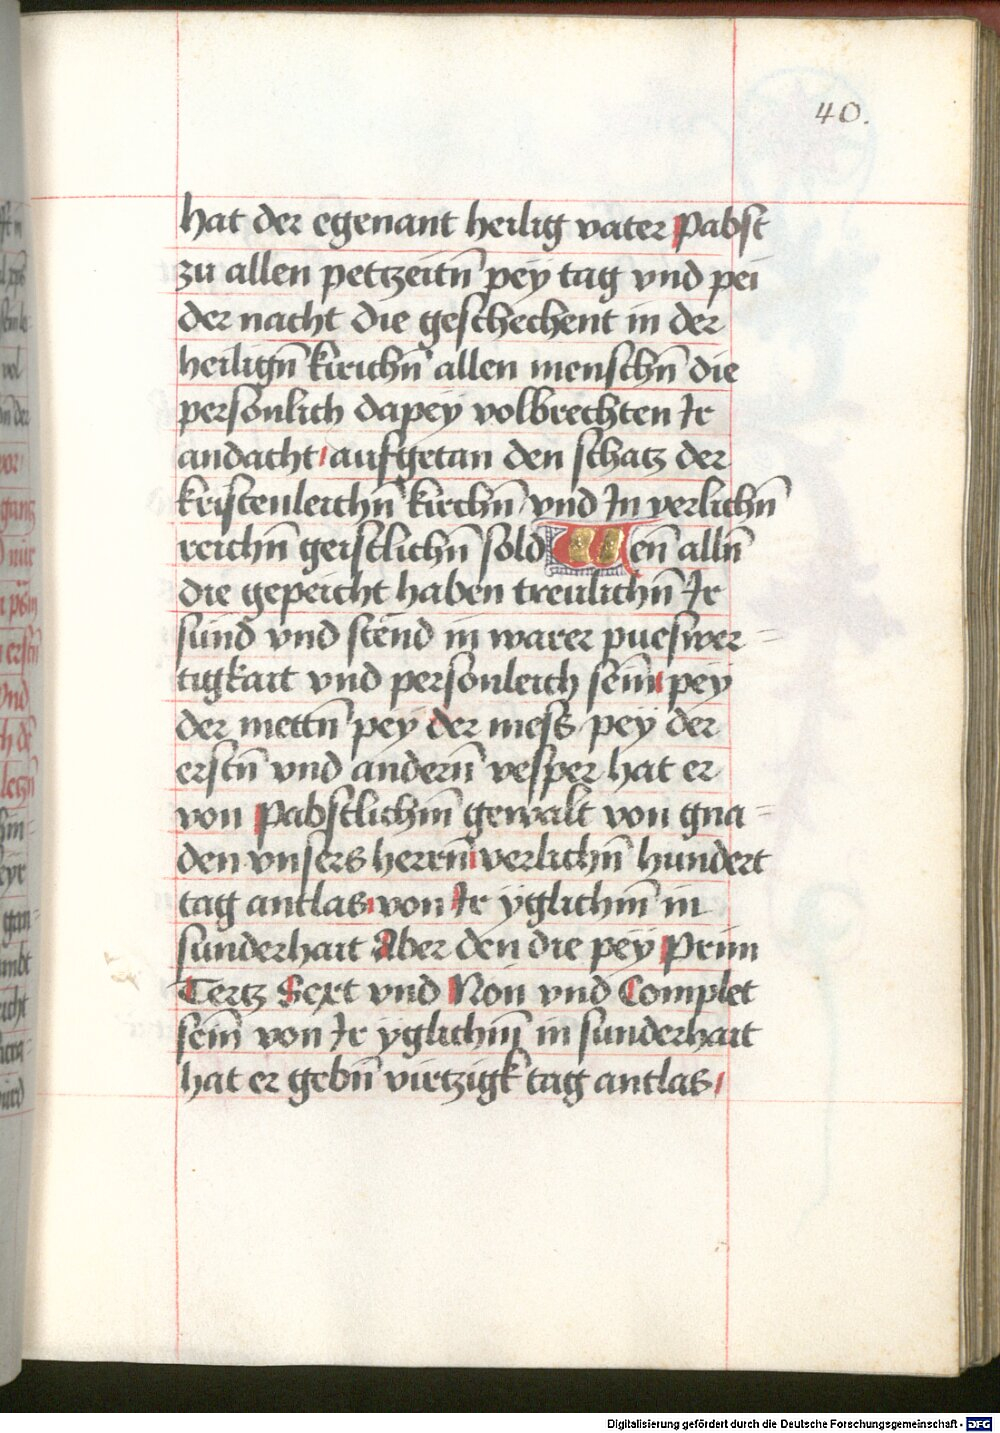 40.
hat der egenant heilig vater Pabst
zu allen petczeitn̄ peÿ tag vnd pei
der nacht die geschechent in der
heilign̄ kirichn̄ allen menschn̄ die
personlich dapeÿ volbrechten Ir
andacht aufgetan den schatz der
kristenleichn̄ kirchn̄ vnd In verlichn̄
reichn̄ geistlichn̄ sold Den̄ alln̄
die gepeicht haben treulichn̄ Ir
sünd vnd stend in warer pueswer=
tigkait vnd personleich sein̄ peÿ
der mettn̄ peÿ der mess peÿ der
erstn̄ vnd andern̄ vesper hat er
von Pabstlichm̄ gewalt von gna=
den vnsers herrn̄ verlichn̄ hundert
tag antlas von Ir ÿglichm̄ in
sunderhait Aber den die peÿ Prim
Tertz Sext vnd Non vnd Complet
sein̄ von Ir ÿglichm̄ in sunderhait
hat er gebn̄ virtzigk tag antlas
Digitalisierung gefördert durch die Deutsche Forschungsgemeinschaft - DFG